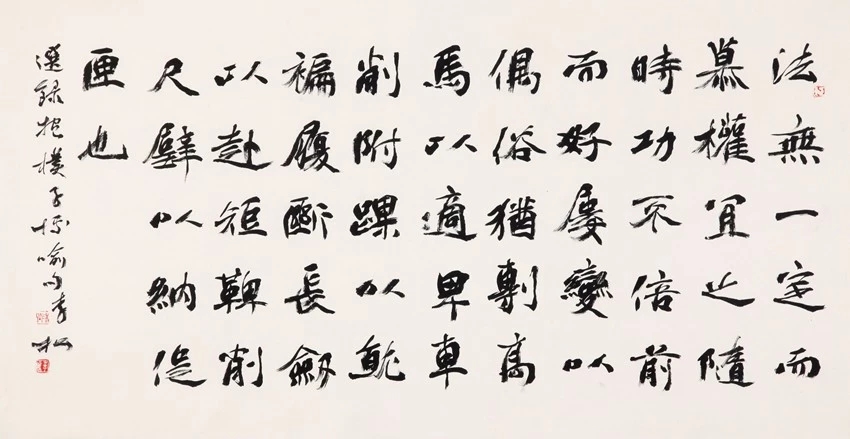 法無一定而
慕權宜之隨
時功不倍前
而好屢變以
偶俗猶剸高
馬以適卑車
削附踝以就
褊履斷長劔
以赴短鞞削
尺璧以納促
匣也
選録抱樸子博喻句李松